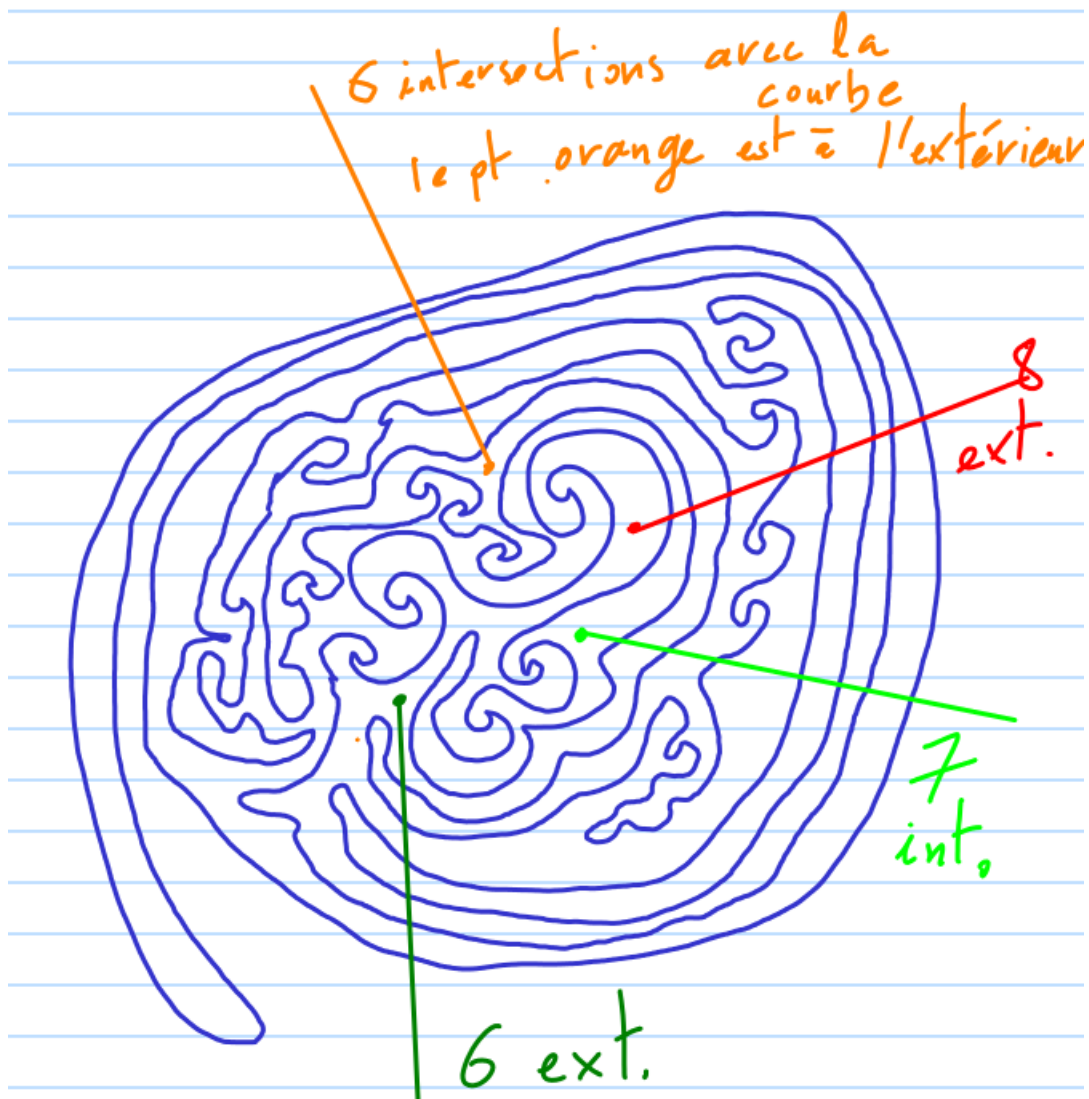 6 intersections avec la
courbe
le pt orange est à l'extérieur
8
ext.
7
int.
6 ext.